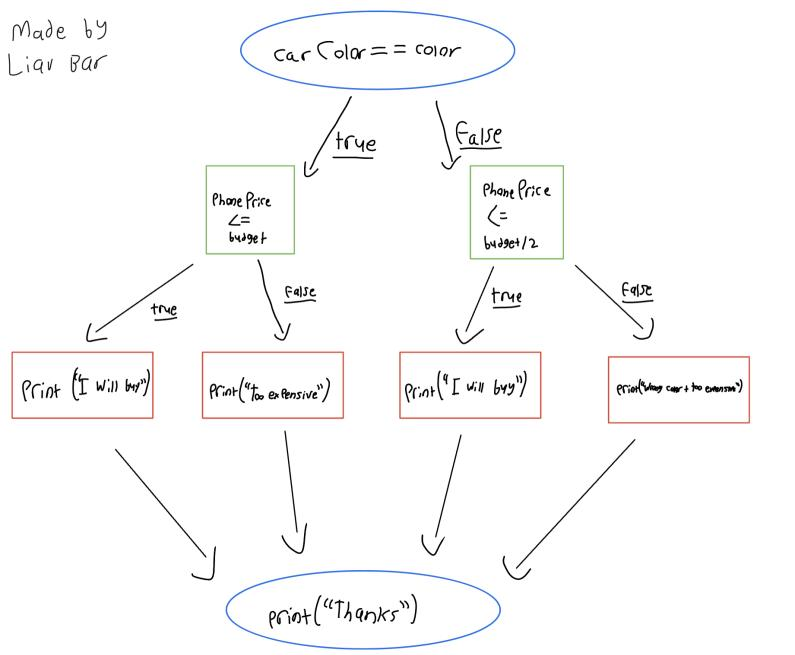 Made by
Liav Bar
car Color == color
true
False
Phone Price
<=
budget
Phone Price
<=
budget/2
true
False
true
False
Print ("I will buy")
Print("Too expensive")
Print("I will buy")
print("wrong color + too expensive")
print("Thanks")